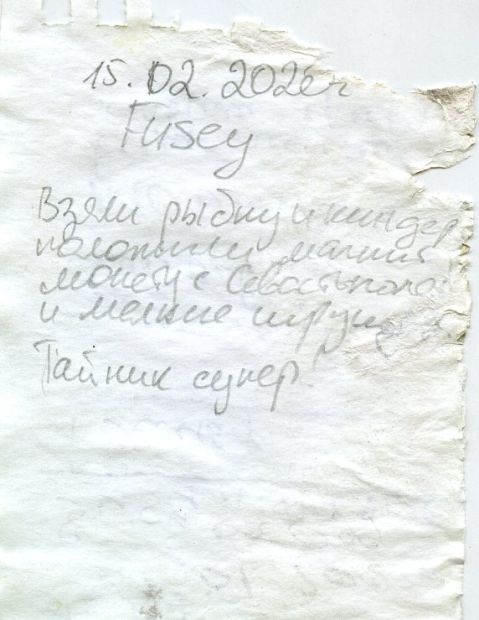 15.02.202г
Fusey
Взяли рыбку и киндер
положили магнит
монету с Севастополя
и мелкие игруш
Тайник супер!